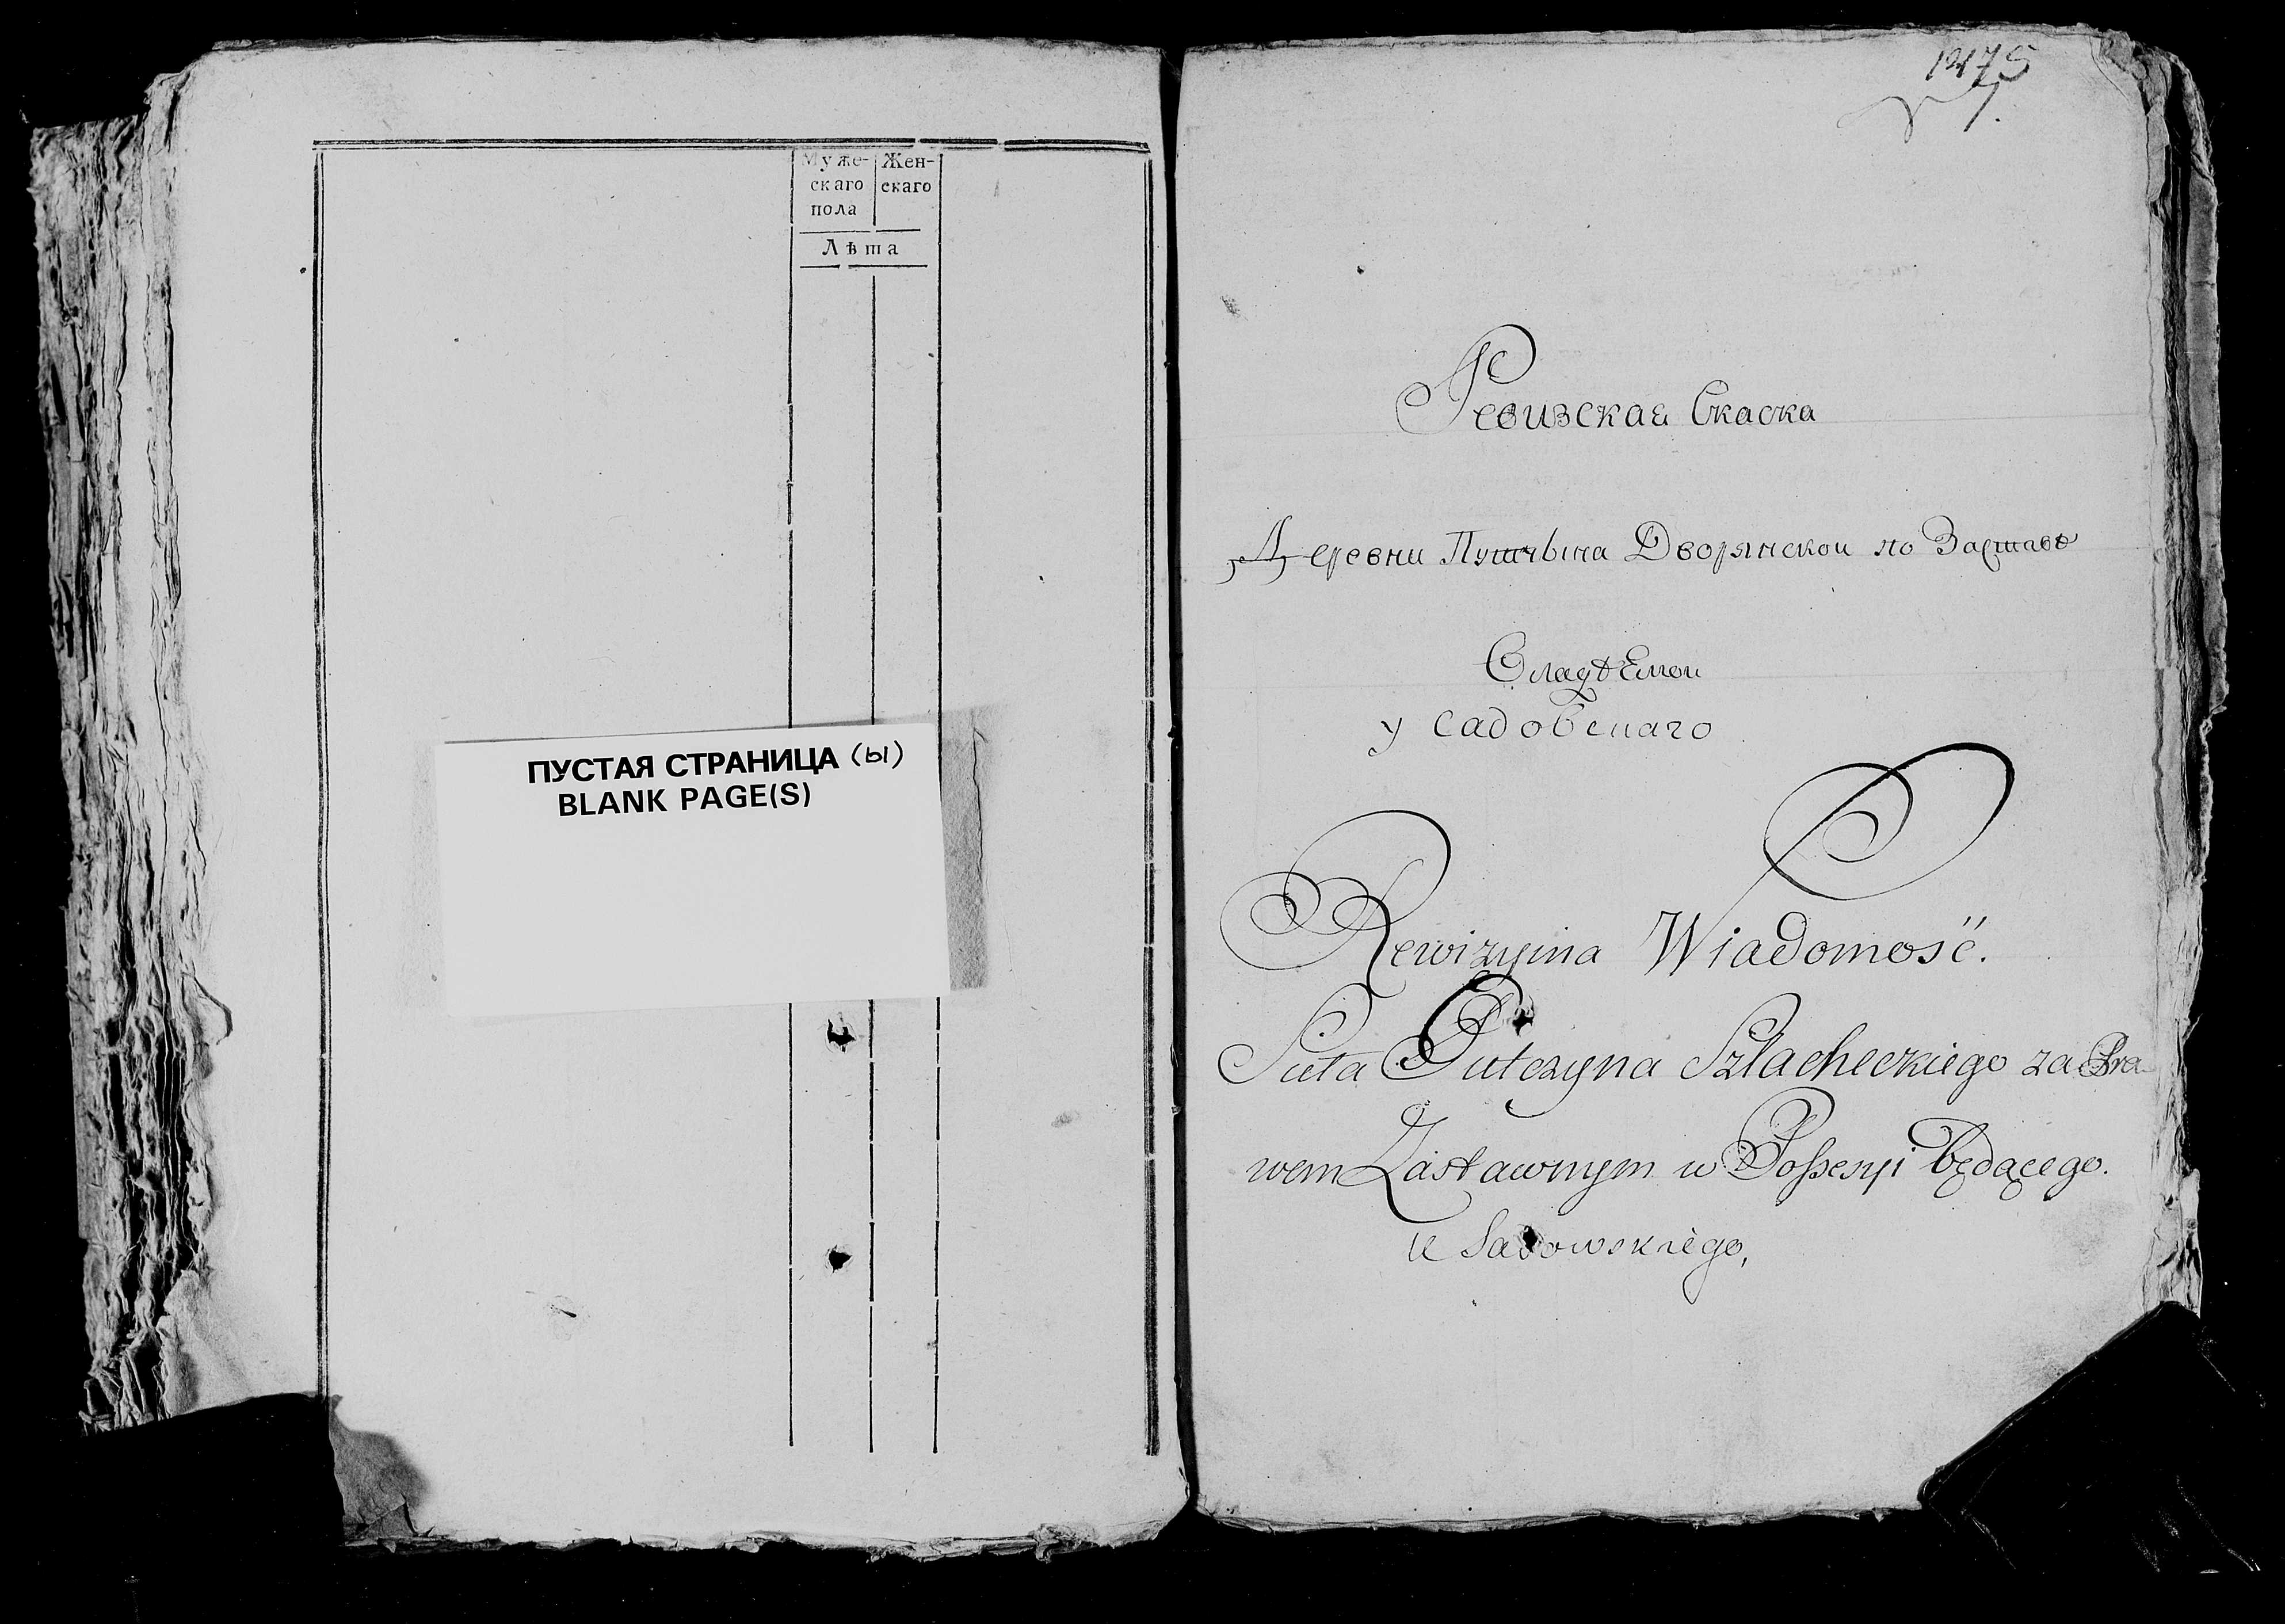 Муже-
скаго
пола
Жен-
скаго
Лѣта
ПУСТАЯ СТРАНИЦА (ы)
BLANK PAGE(S)
Ревизская Скаска
Деревни Путчына Дворянской по Заставѣ
владѣемои
у Садовскаго
Rewizyina Wiadomość.
Sieła Putczyna Szlacheckiego za Pra-
wem Zastawnym w Possesyi będącego.
u Sadowskiego,